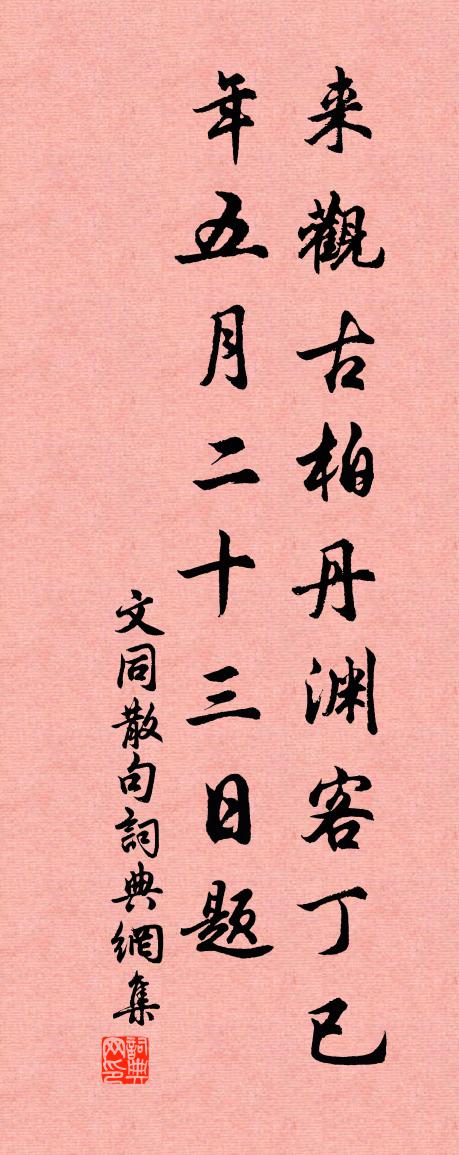 来觀古柏丹渊客丁巳
年五月二十三日题
文同散句詞典網集
詞典网印